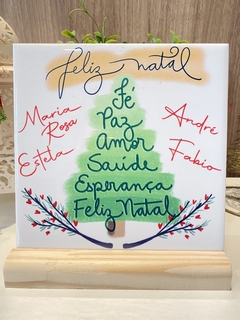 feliz natal
Maria
Rosa
Estela
Fé
Paz
Amor
Saúde
Esperança
Feliz Natal
André
Fabio